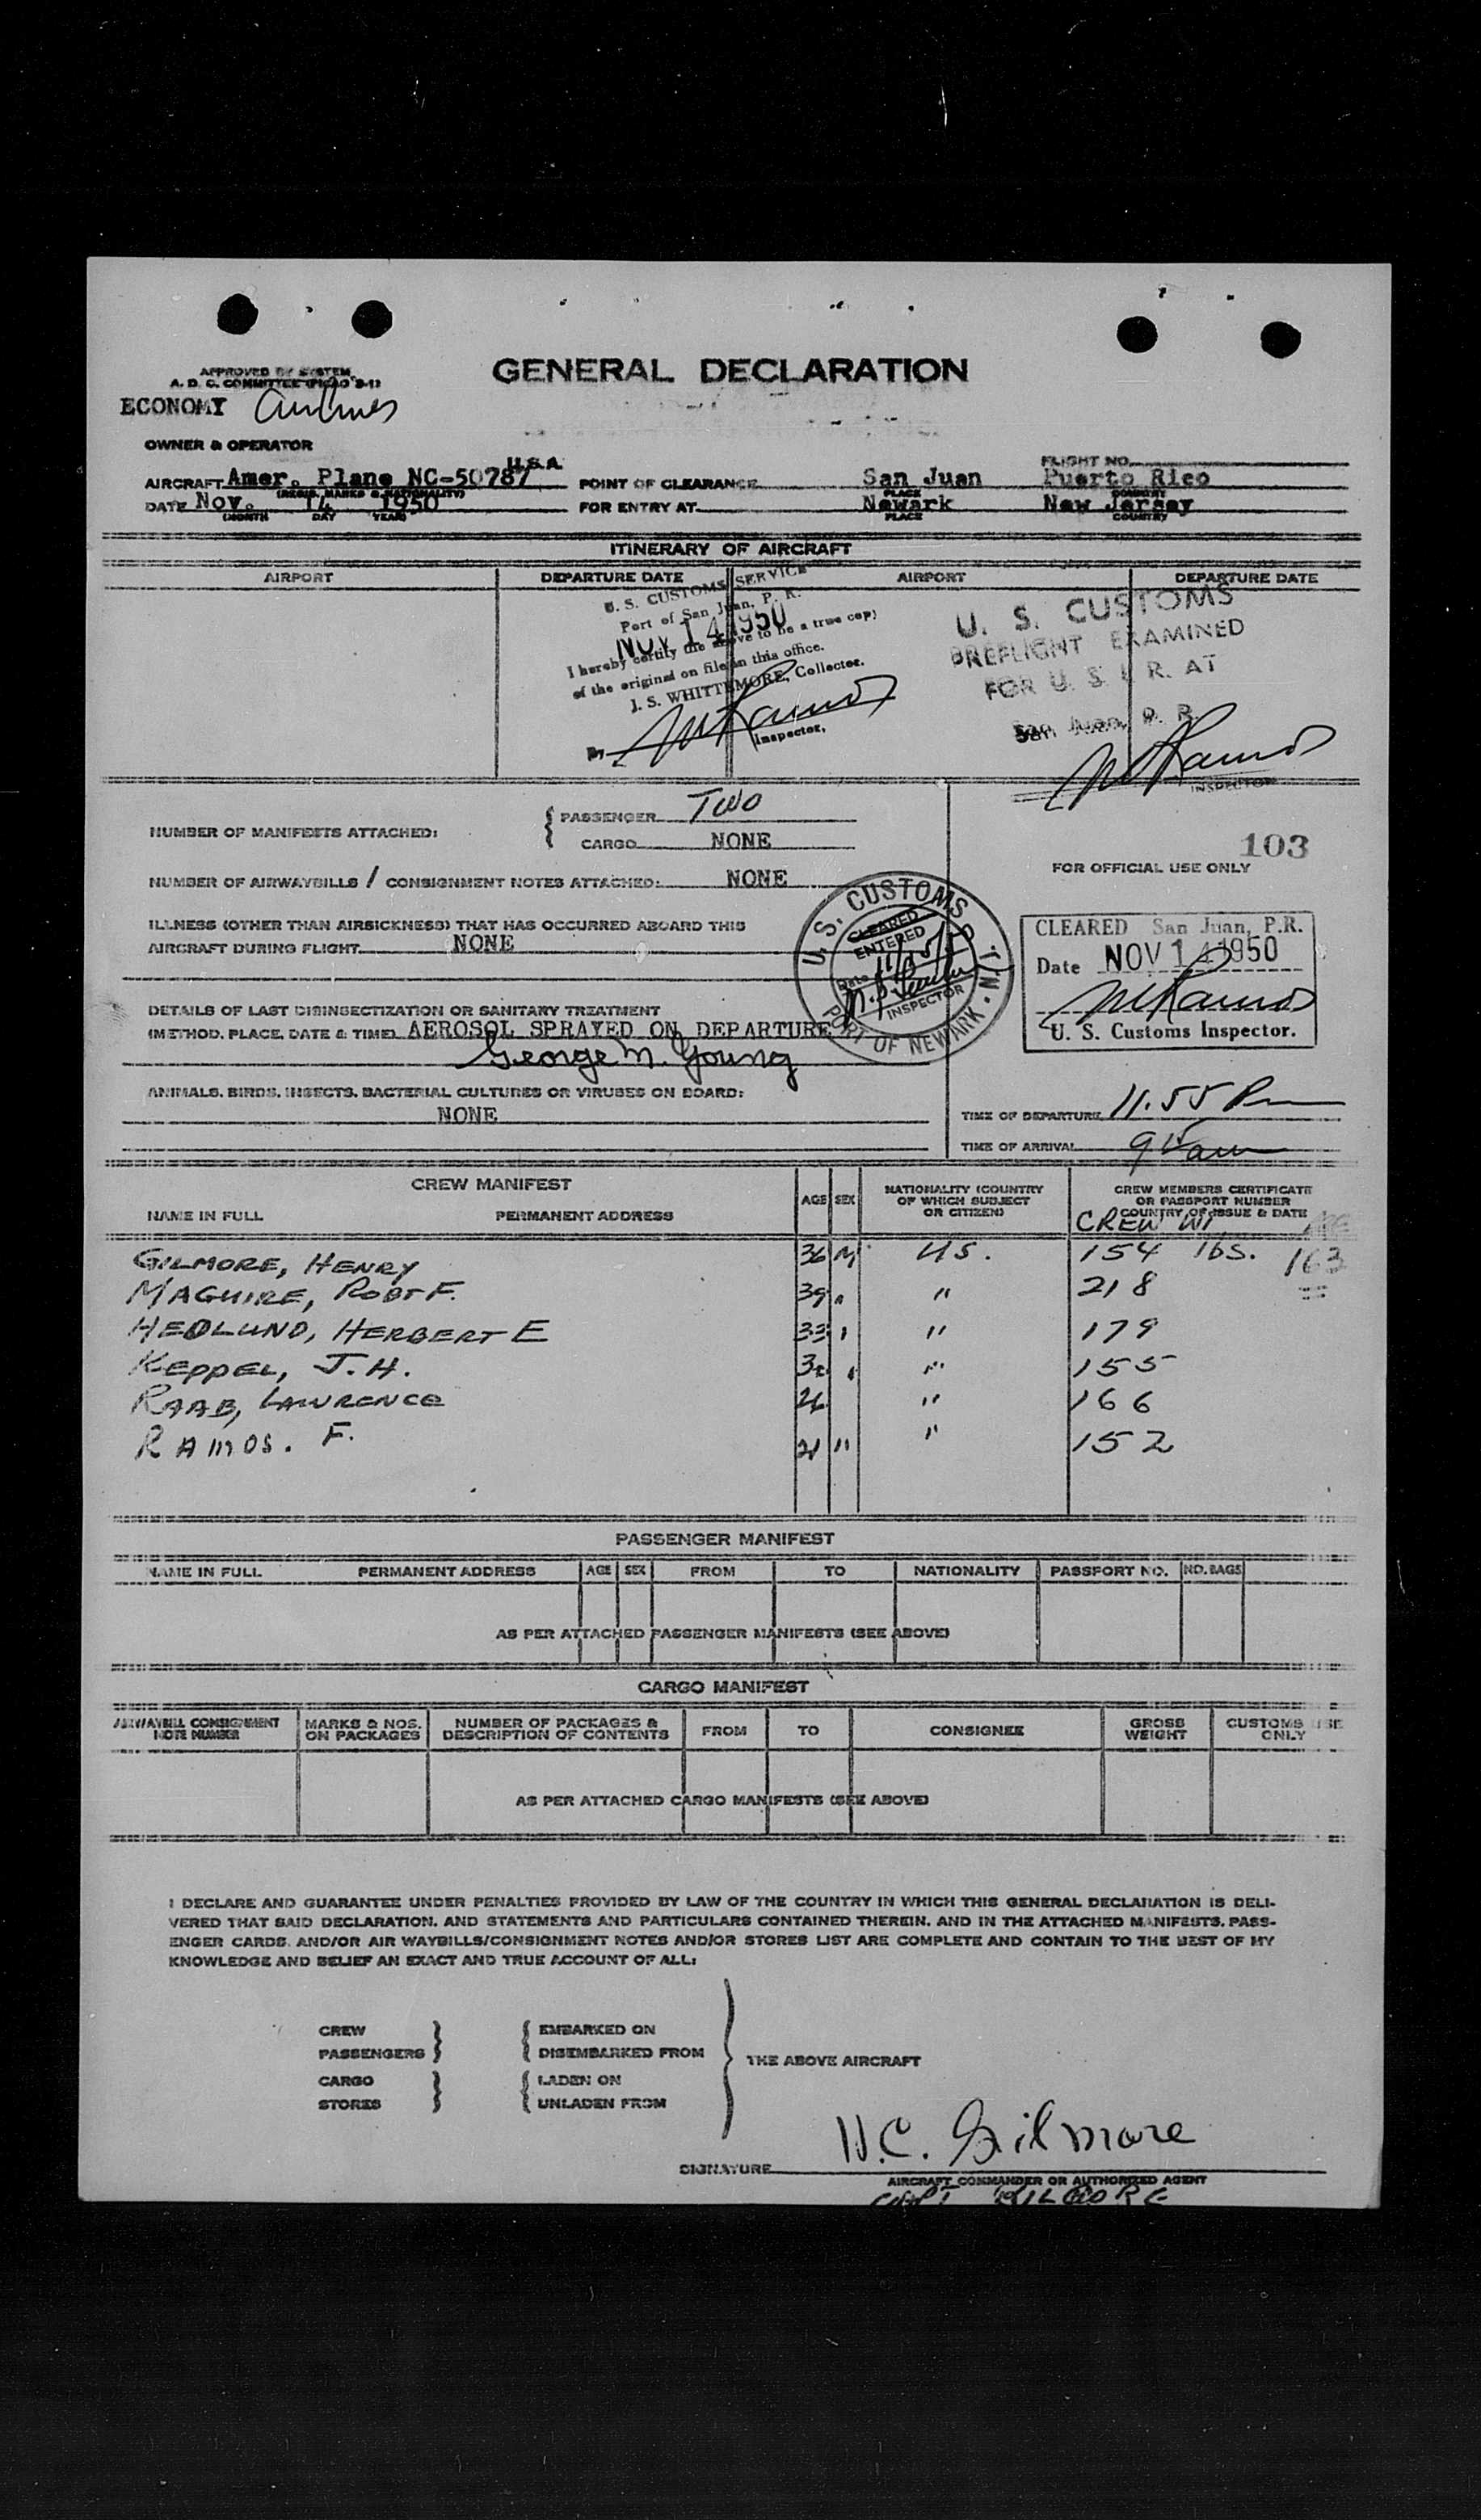 GENERAL DECLARATION
APPROVED BY SYSTEM
A. D. C. COMMITTEE
ECONOMY Airlines
OWNER & OPERATOR
FLIGHT NO.
AIRCRAFT Amer. Plane NC-50787 U.S.A. POINT OF CLEARANCE San Juan Puerto Rico
(REGIS. MARKS & NATIONALITY) PLACE COUNTRY
DATE Nov. 14 1950 FOR ENTRY AT Newark New Jersey
(MONTH DAY YEAR) PLACE COUNTRY
ITINERARY OF AIRCRAFT
AIRPORT DEPARTURE DATE AIRPORT DEPARTURE DATE
U. S. CUSTOMS SERVICE
Port of San Juan, P. R.
NOV 14 1950
I hereby certify the above to be a true copy
of the original on file in this office.
J. S. WHITTEMORE, Collector.
By M Ramos
Inspector,
U. S. CUSTOMS
PREFLIGHT EXAMINED
FOR U. S. I. R. AT
San Juan, P. R.
M Ramos
INSPECTOR
NUMBER OF MANIFESTS ATTACHED:
PASSENGER TWO
CARGO NONE
103
FOR OFFICIAL USE ONLY
NUMBER OF AIRWAYBILLS / CONSIGNMENT NOTES ATTACHED: NONE
ILLNESS (OTHER THAN AIRSICKNESS) THAT HAS OCCURRED ABOARD THIS
AIRCRAFT DURING FLIGHT NONE
U. S. CUSTOMS
CLEARED
ENTERED
Date 11/15/50
INSPECTOR
PORT OF NEWARK · N.J.
CLEARED San Juan, P.R.
Date NOV 14 1950
M Ramos
U. S. Customs Inspector.
DETAILS OF LAST DISINSECTIZATION OR SANITARY TREATMENT
(METHOD, PLACE, DATE & TIME) AEROSOL SPRAYED ON DEPARTURE
George M. Young
ANIMALS, BIRDS, INSECTS, BACTERIAL CULTURES OR VIRUSES ON BOARD:
NONE
TIME OF DEPARTURE 11.55 Pm
TIME OF ARRIVAL
CREW MANIFEST
NAME IN FULL PERMANENT ADDRESS AGE SEX NATIONALITY (COUNTRY OF WHICH SUBJECT OR CITIZEN) CREW MEMBERS CERTIFICATE OR PASSPORT NUMBER COUNTRY OF ISSUE & DATE
CREW WT
GILMORE, HENRY 36 M US. 154 lbs. 163
MAGUIRE, ROBT F. 39 " " 218
HEDLUND, HERBERT E 33 " " 179
KEPPEL, J. H. " " 155
RAAB, LAWRENCE 26 " 166
RAMOS. F. 21 " " 152
PASSENGER MANIFEST
NAME IN FULL PERMANENT ADDRESS AGE SEX FROM TO NATIONALITY PASSPORT NO. NO. BAGS
AS PER ATTACHED PASSENGER MANIFESTS (SEE ABOVE)
CARGO MANIFEST
AIRWAYBILL CONSIGNMENT NOTE NUMBER MARKS & NOS. ON PACKAGES NUMBER OF PACKAGES & DESCRIPTION OF CONTENTS FROM TO CONSIGNEE GROSS WEIGHT CUSTOMS USE ONLY
AS PER ATTACHED CARGO MANIFESTS (SEE ABOVE)
I DECLARE AND GUARANTEE UNDER PENALTIES PROVIDED BY LAW OF THE COUNTRY IN WHICH THIS GENERAL DECLARATION IS DELI-
VERED THAT SAID DECLARATION, AND STATEMENTS AND PARTICULARS CONTAINED THEREIN, AND IN THE ATTACHED MANIFESTS, PASS-
ENGER CARDS, AND/OR AIR WAYBILLS/CONSIGNMENT NOTES AND/OR STORES LIST ARE COMPLETE AND CONTAIN TO THE BEST OF MY
KNOWLEDGE AND BELIEF AN EXACT AND TRUE ACCOUNT OF ALL:
CREW EMBARKED ON
PASSENGERS DISEMBARKED FROM
THE ABOVE AIRCRAFT
CARGO LADEN ON
STORES UNLADEN FROM
SIGNATURE H.C. Gilmore
AIRCRAFT COMMANDER OR AUTHORIZED AGENT
CAPT GILMORE